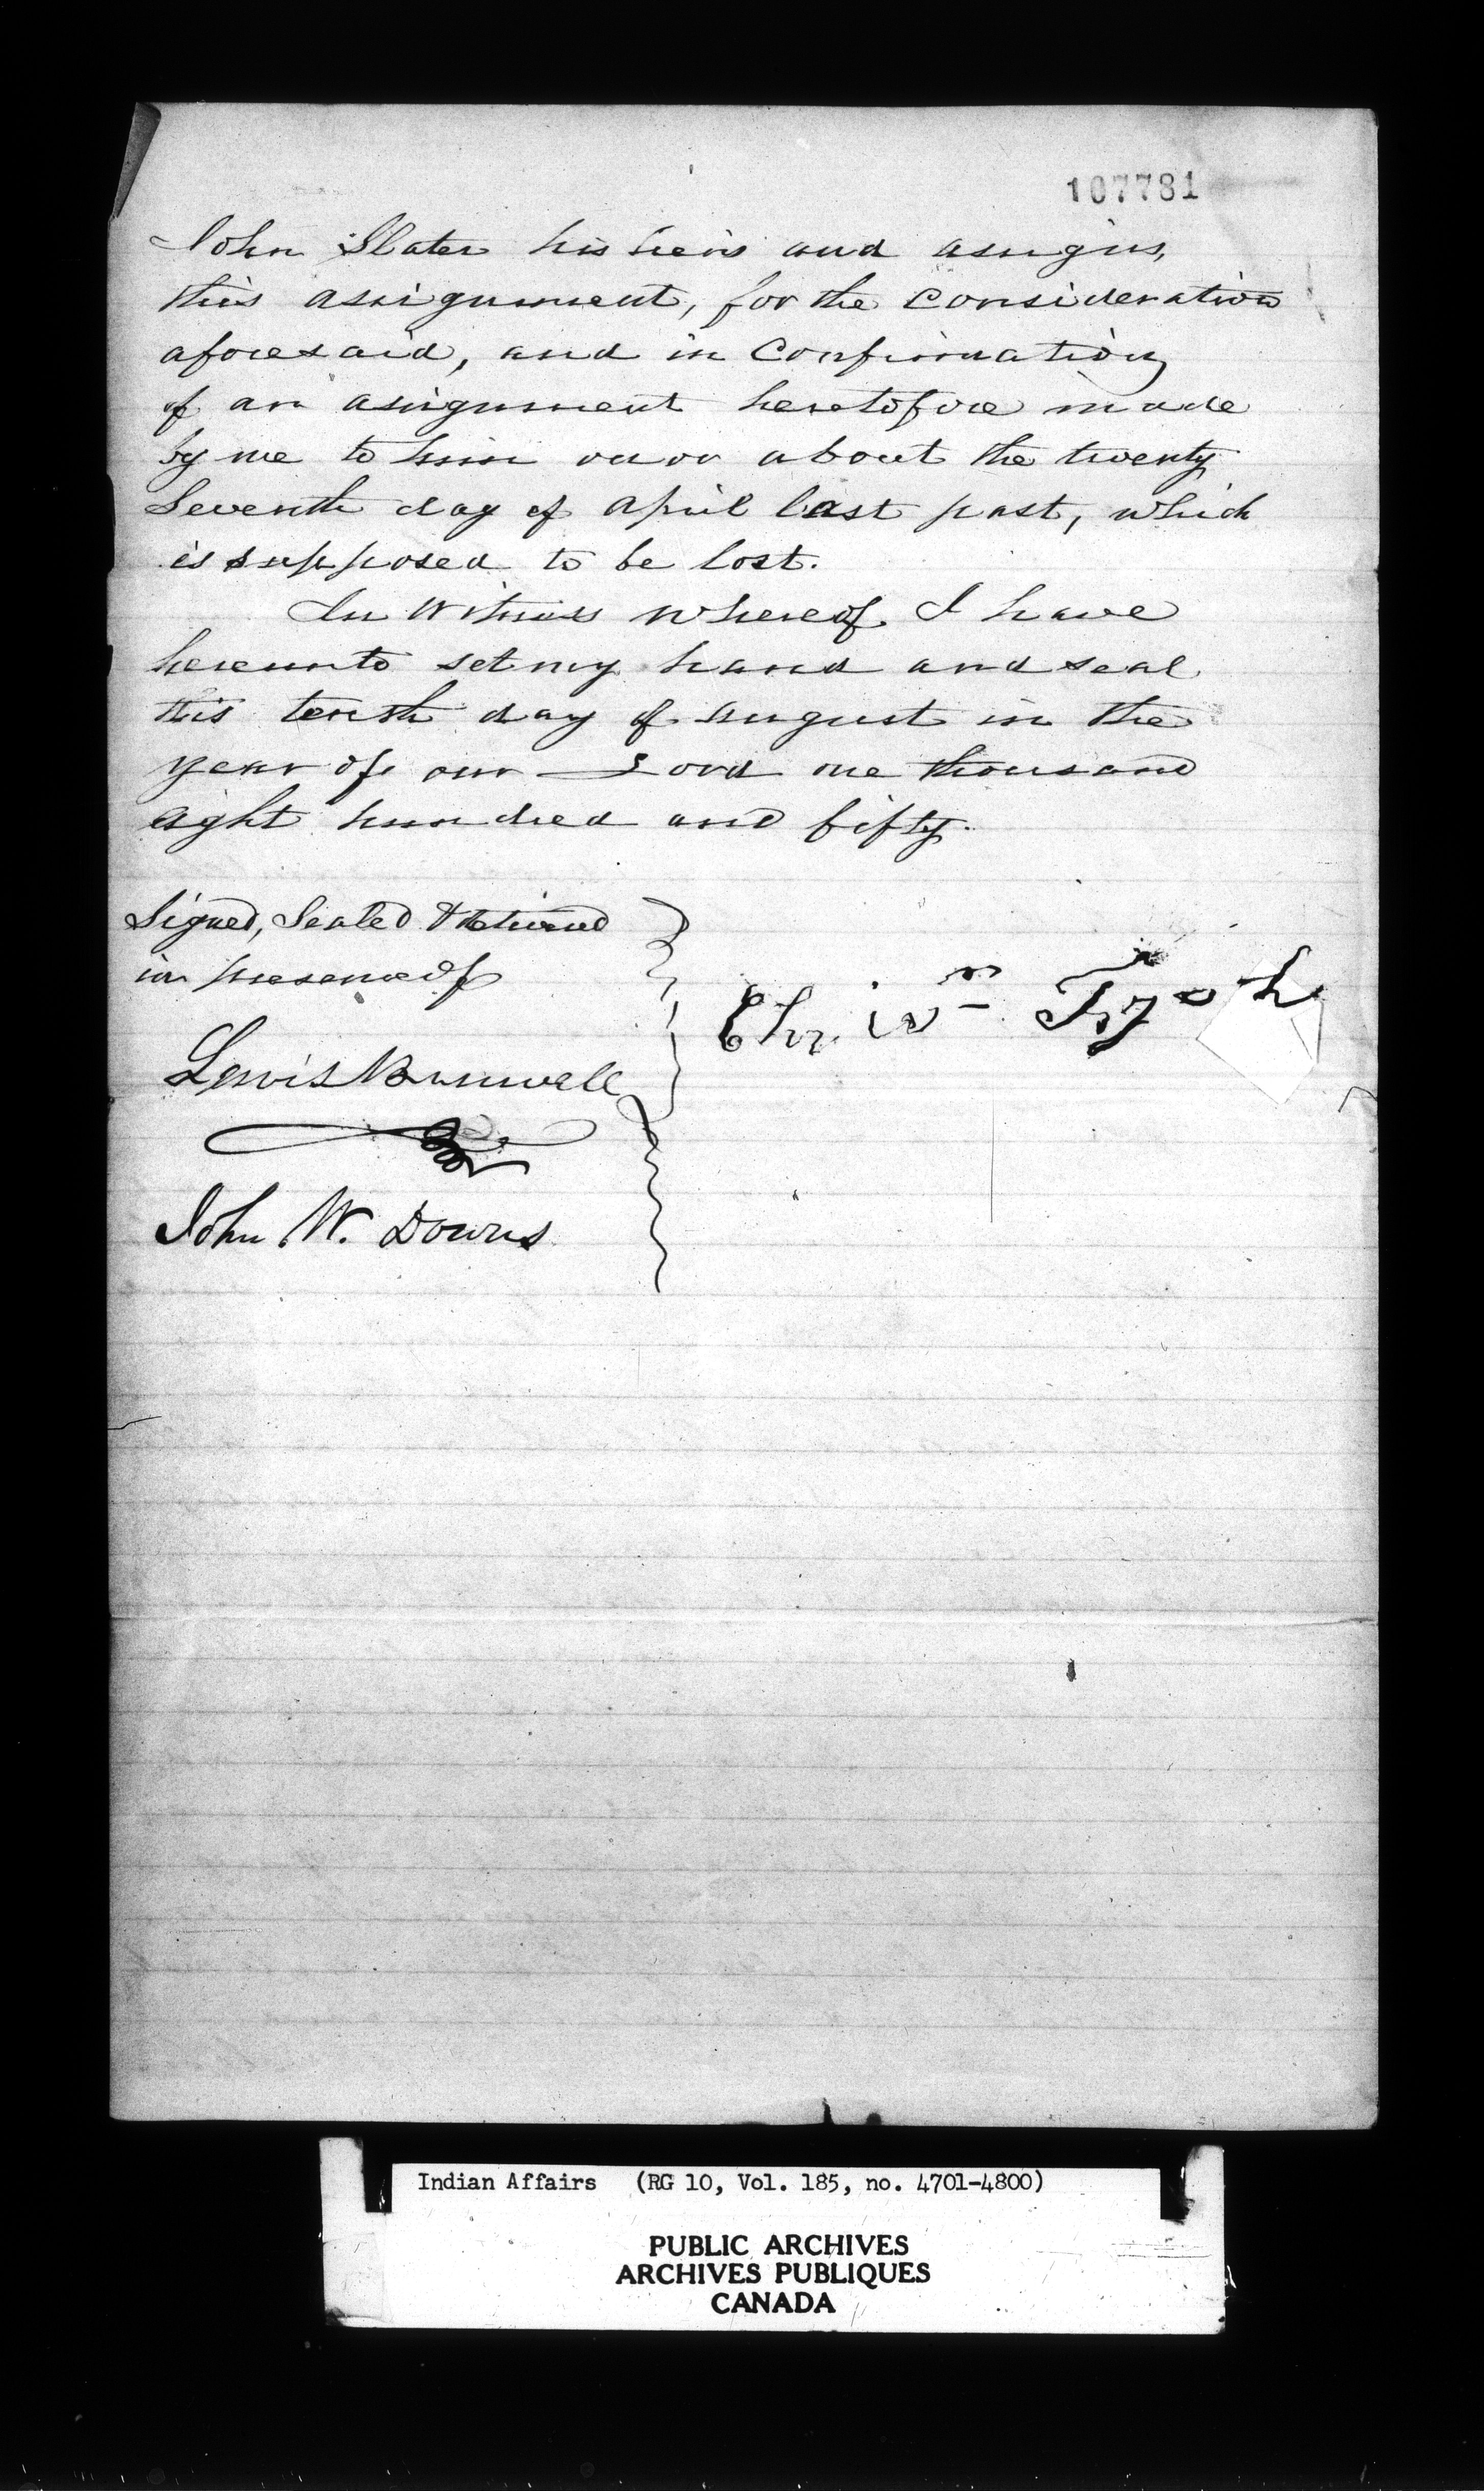 107781
John Slater his heirs and assigns,
this assignment, for the consideration
aforesaid, and in Confirmation
of an assignment heretofore made
by me to him on or about the twenty
Seventh day of April last past, which
is supposed to be lost.
In Witness Whereof I have
hereunto set my hand and seal
this tenth day of August in the
year of our Lord one thousand
eight hundred and fifty.
Signed, Sealed & delivered
in presence of
Lewis Burwell
John W. Downs
Indian Affairs (RG 10, Vol. 185, no. 4701-4800)
PUBLIC ARCHIVES
ARCHIVES PUBLIQUES
CANADA